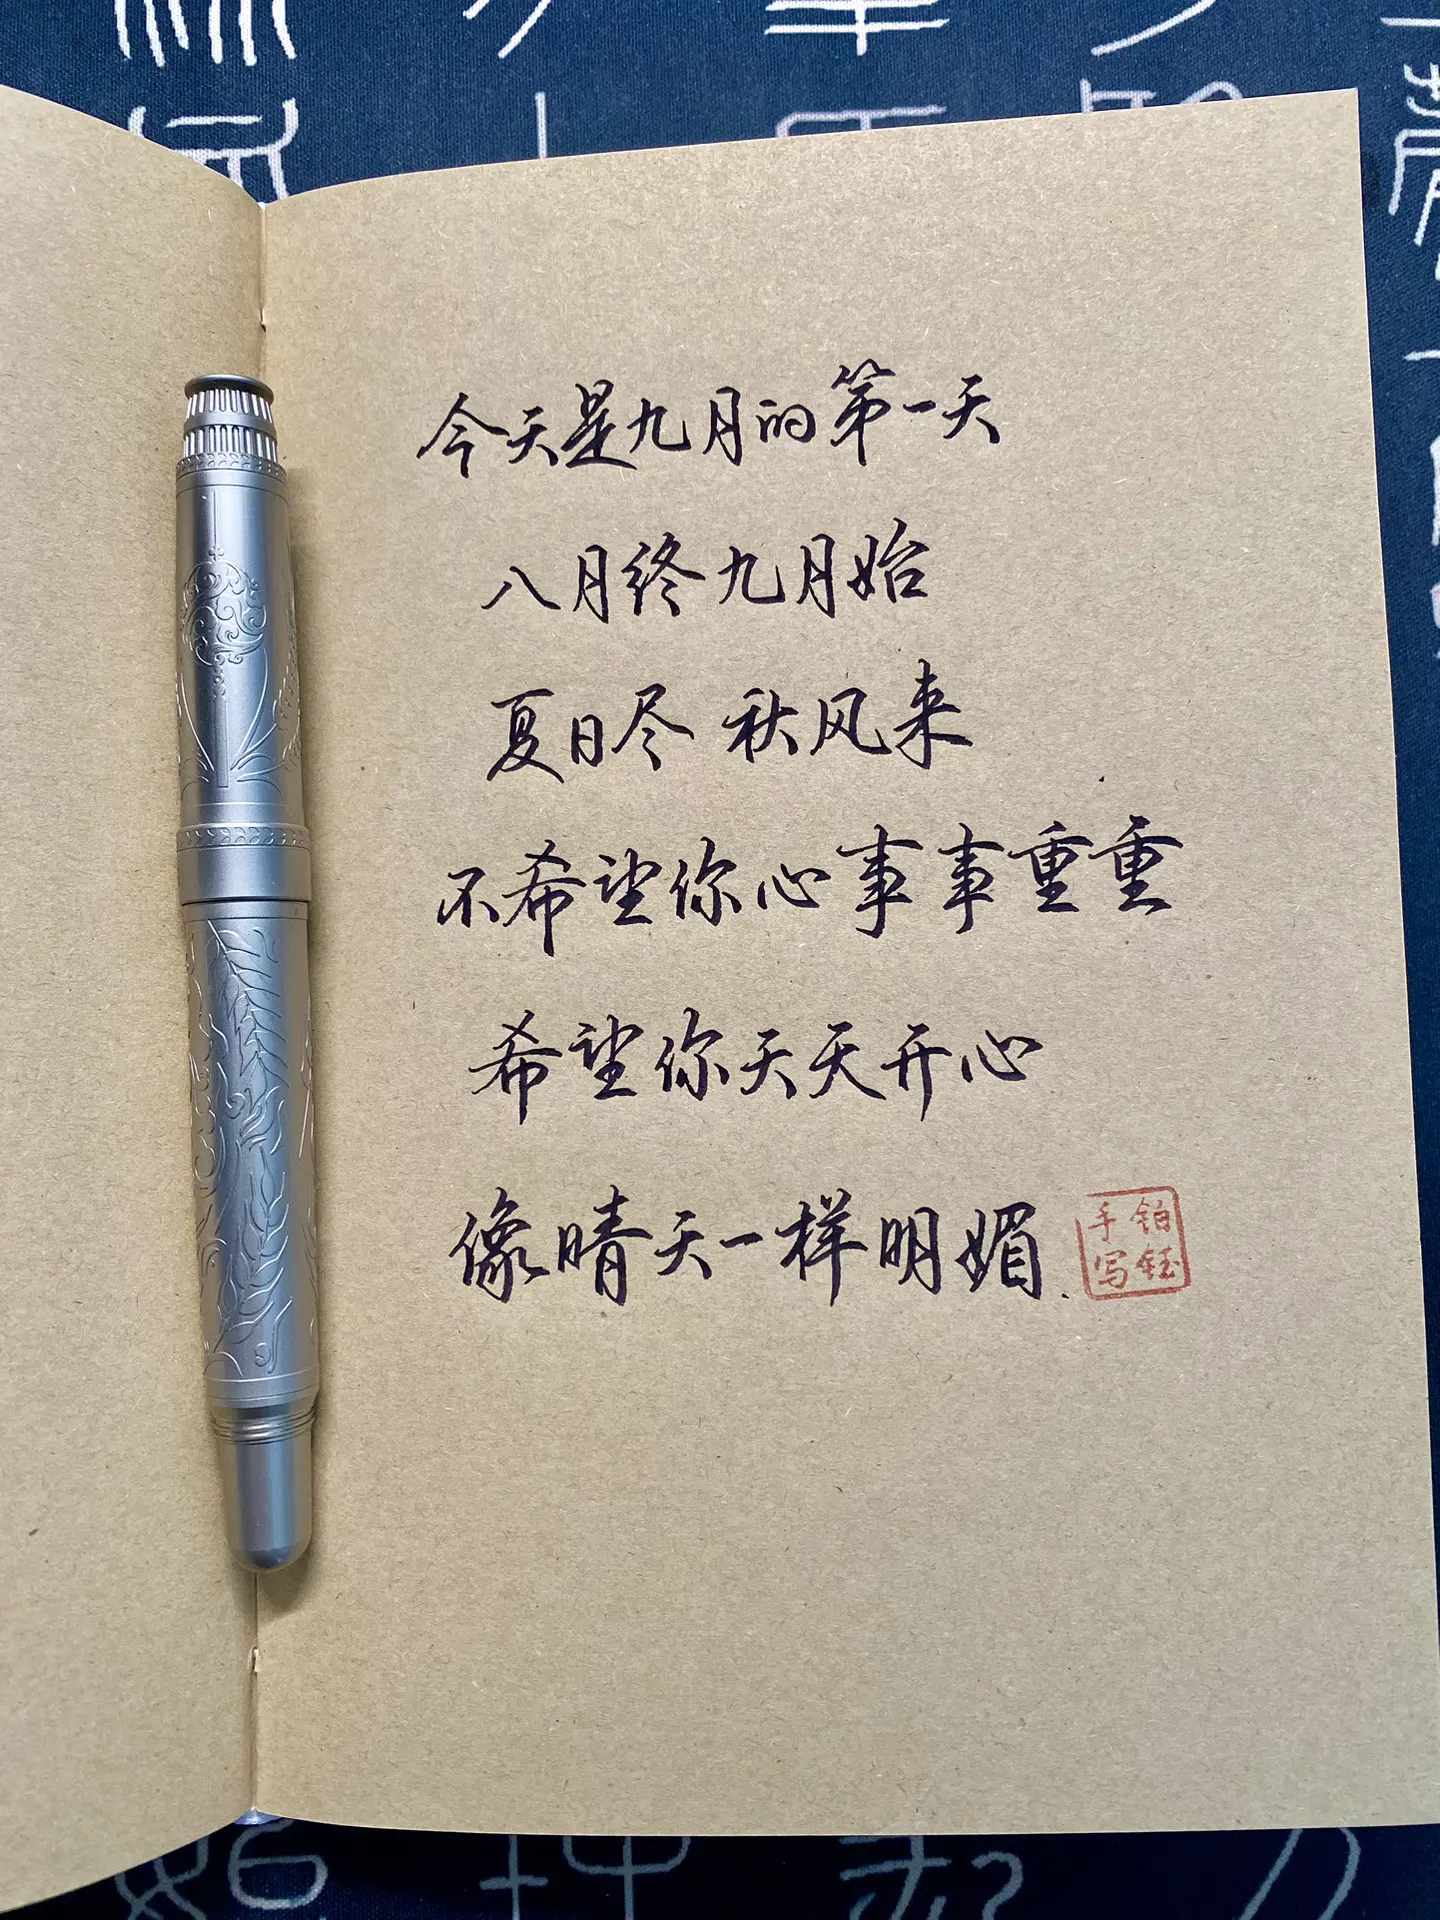 今天是九月的第一天
八月终 九月始
夏日尽 秋风来
不希望你心事事重重
希望你天天开心
像晴天一样明媚.
铂钰
手写